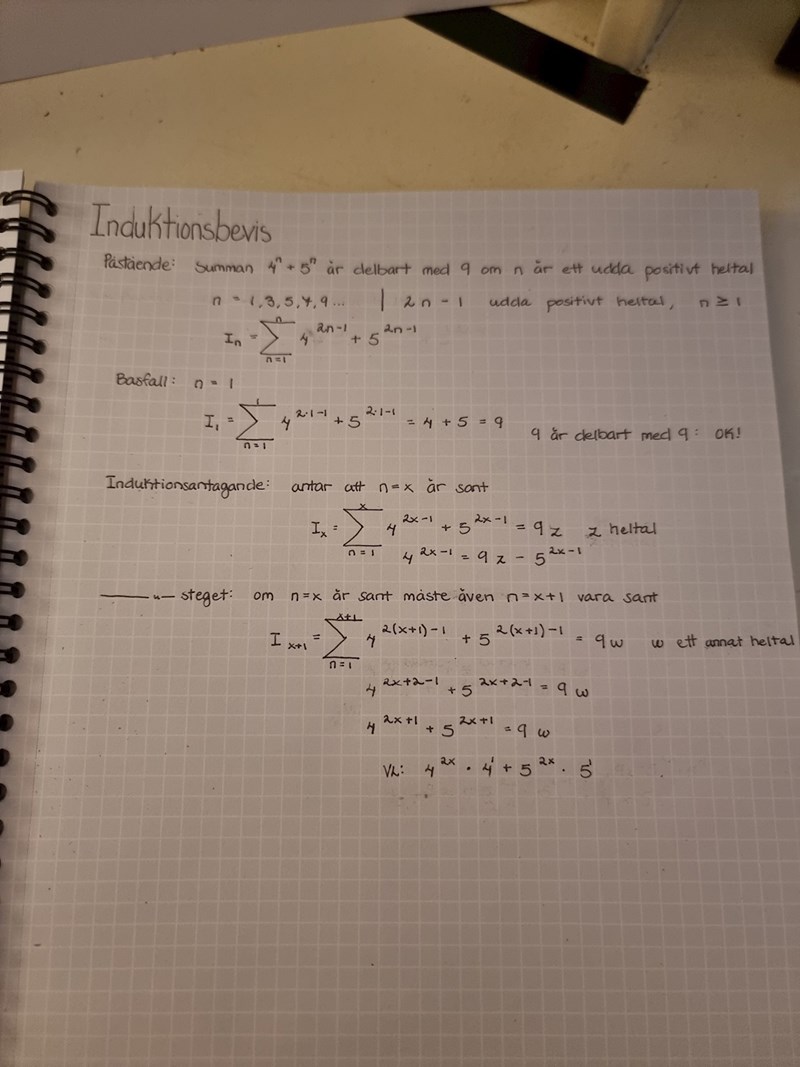 Induktionsbevis
Påstående: Summan 4ⁿ + 5ⁿ är delbart med 9 om n är ett udda positivt heltal
n = 1, 3, 5, 7, 9 ... | 2n - 1 udda positivt heltal, n ≥ 1
Iₙ = ∑_{n=1}^{n} 4^{2n-1} + 5^{2n-1}
Basfall: n = 1
I₁ = ∑_{n=1}^{1} 4^{2·1-1} + 5^{2·1-1} = 4 + 5 = 9 9 är delbart med 9: OK!
Induktionsantagande: antar att n = x är sant
Iₓ = ∑_{n=1}^{x} 4^{2x-1} + 5^{2x-1} = 9z z heltal
4^{2x-1} = 9z - 5^{2x-1}
——— " — steget: om n = x är sant måste även n = x+1 vara sant
I_{x+1} = ∑_{n=1}^{x+1} 4^{2(x+1)-1} + 5^{2(x+1)-1} = 9w w ett annat heltal
4^{2x+2-1} + 5^{2x+2-1} = 9w
4^{2x+1} + 5^{2x+1} = 9w
VL: 4^{2x} · 4^{1} + 5^{2x} · 5^{1}